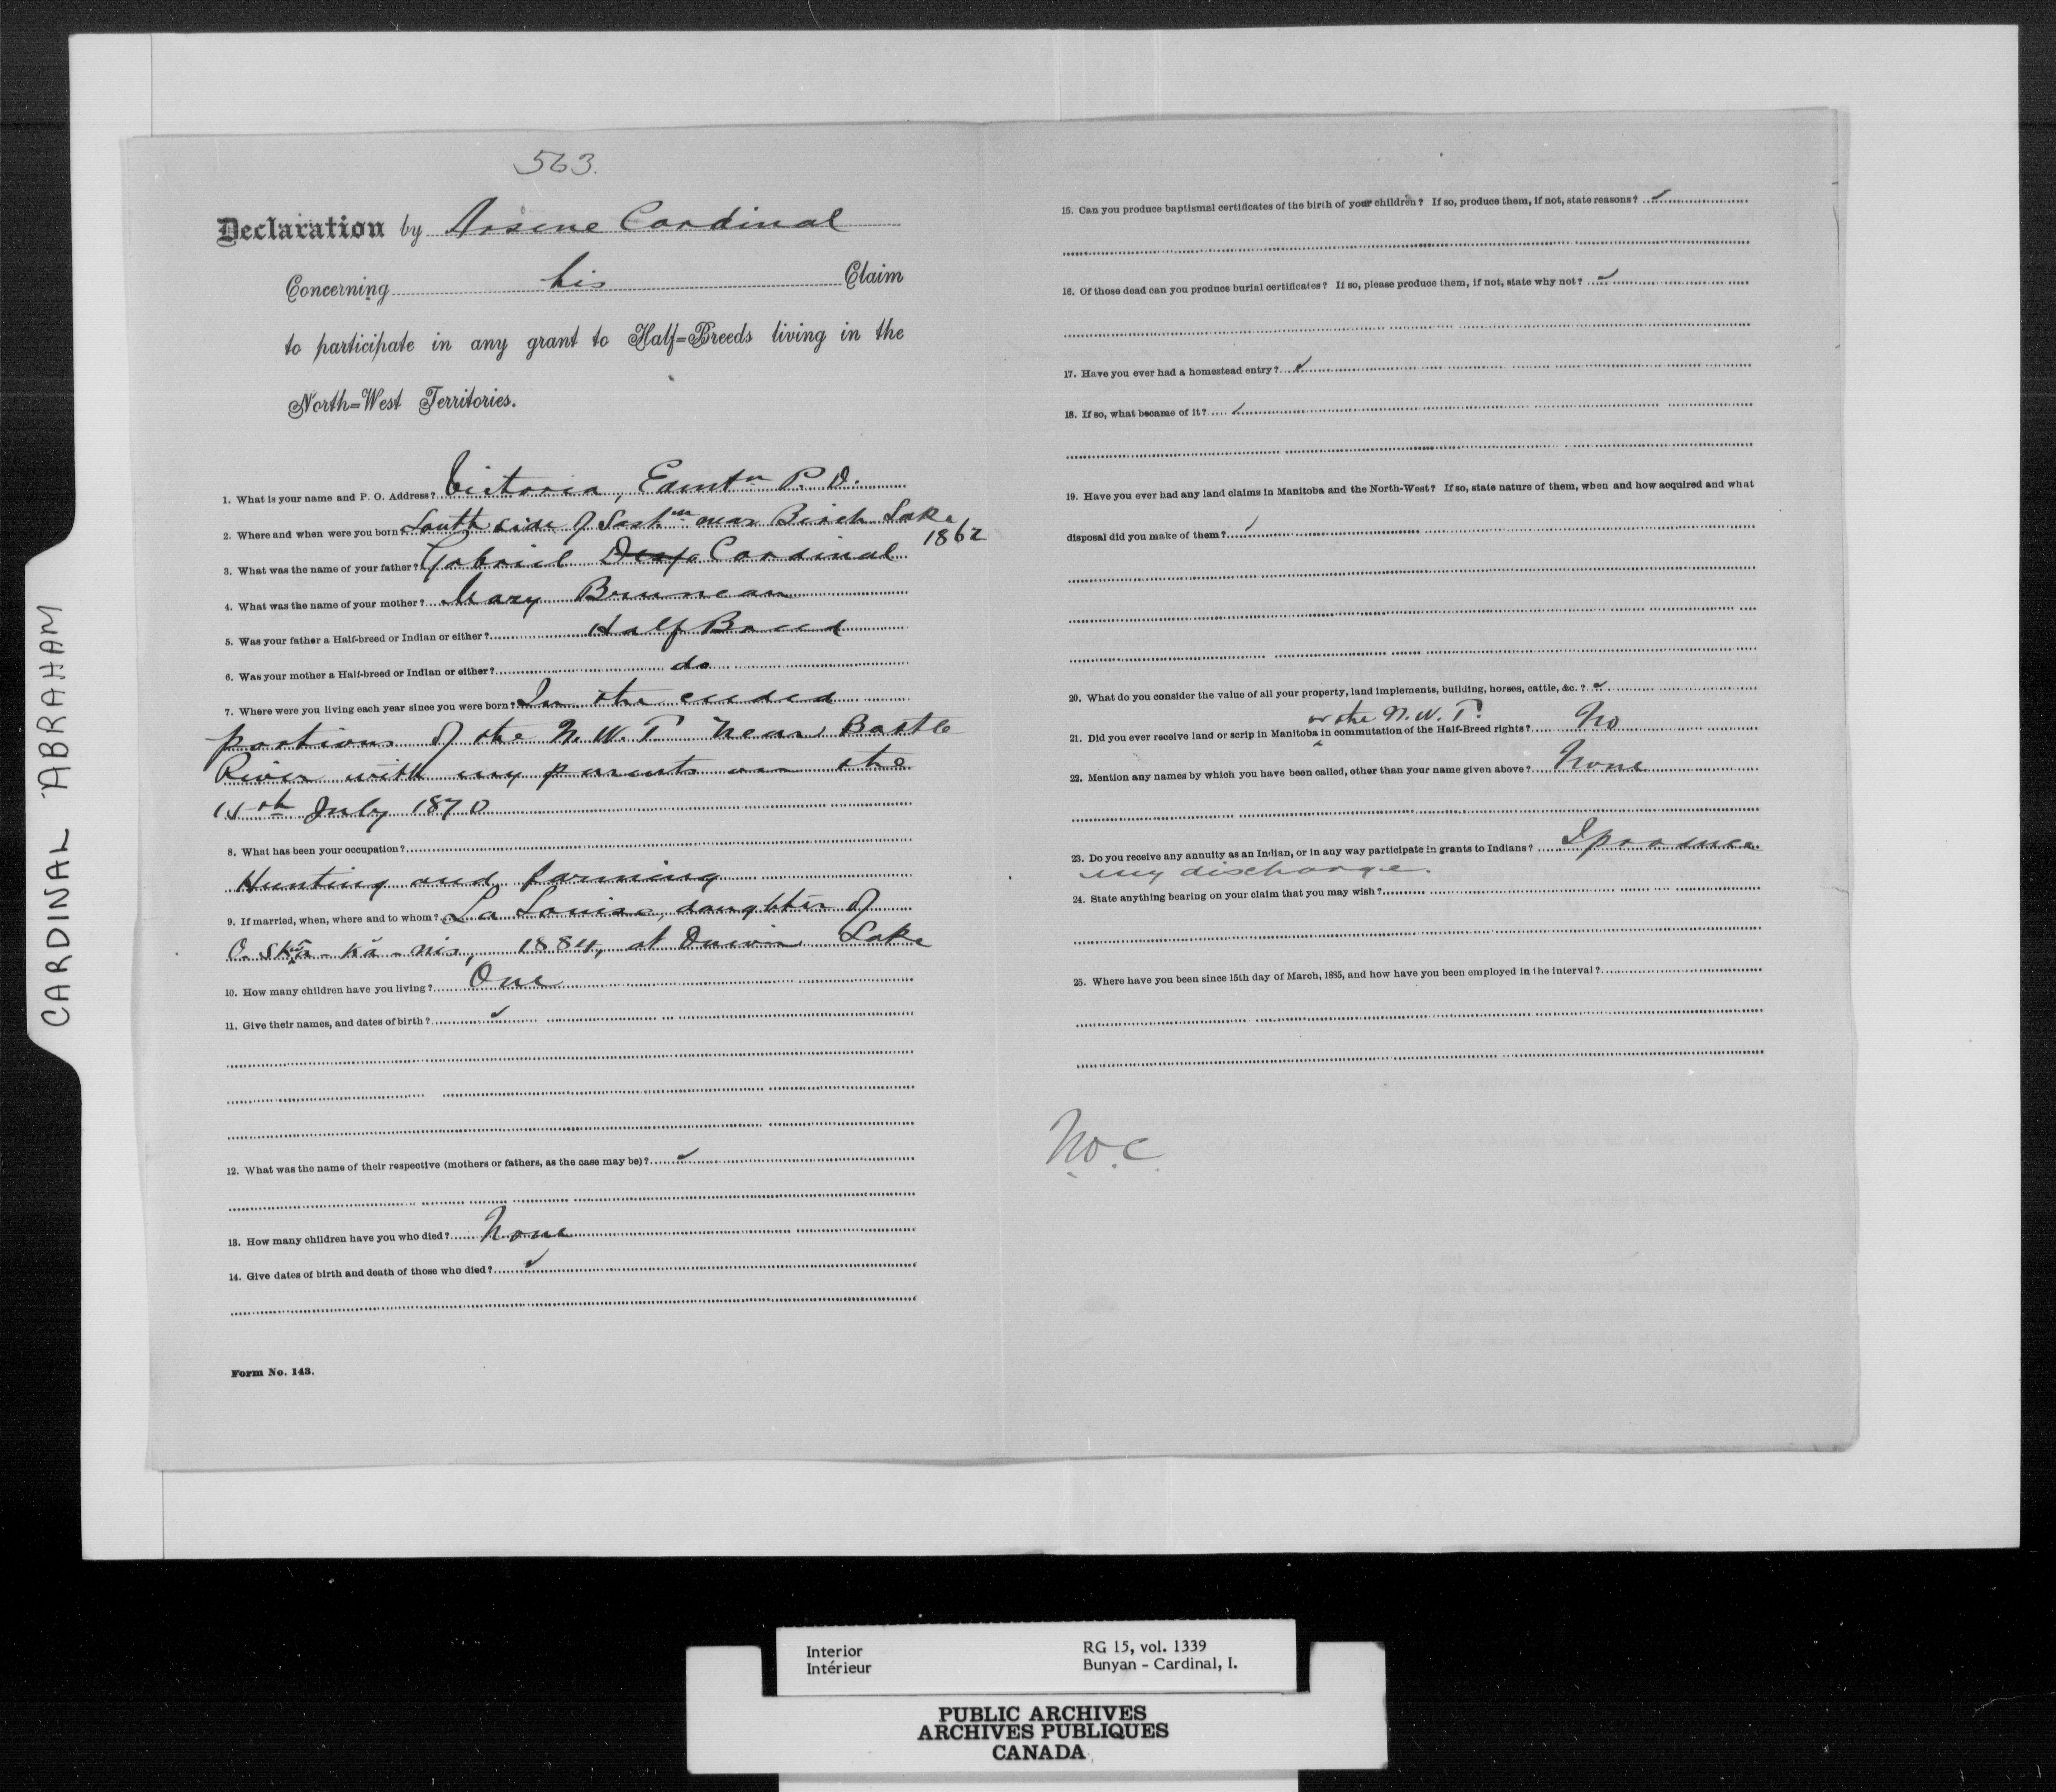 CARDINAL ABRAHAM
563.
Declaration by Arsene Cardinal
Concerning his Claim
to participate in any grant to Half=Breeds living in the
North=West Territories.
1. What is your name and P. O. Address? Victoria, Edmtn P. O.
2. Where and when were you born South side of Saskn near Birch Lake
1862
3. What was the name of your father? Gabriel Cardinal
4. What was the name of your mother? Mary Bruneau
5. Was your father a Half-breed or Indian or either? Half Breed
6. Was your mother a Half-breed or Indian or either? do
7. Where were you living each year since you were born? In the ceded
portions of the N. W. T. near Battle
River with my parents on the
15th July 1870
8. What has been your occupation?
Hunting and farming
9. If married, when, where and to whom? La Louise, daughter of
O-skā-kā-nis, 1884, at Lake
10. How many children have you living? One
11. Give their names, and dates of birth? ✓
12. What was the name of their respective (mothers or fathers, as the case may be)? ✓
13. How many children have you who died? None
14. Give dates of birth and death of those who died? ✓
Form No. 143.
15. Can you produce baptismal certificates of the birth of your children? If so, produce them, if not, state reasons? ✓
16. Of those dead can you produce burial certificates? If so, please produce them, if not, state why not? ✓
17. Have you ever had a homestead entry? ✓
18. If so, what became of it? ✓
19. Have you ever had any land claims in Manitoba and the North-West? If so, state nature of them, when and how acquired and what
disposal did you make of them? ✓
20. What do you consider the value of all your property, land implements, building, horses, cattle, &c.? ✓
or the N. W. T.
21. Did you ever receive land or scrip in Manitoba ‸ in commutation of the Half-Breed rights? No
22. Mention any names by which you have been called, other than your name given above? None
23. Do you receive any annuity as an Indian, or in any way participate in grants to Indians? I produce
my discharge.
24. State anything bearing on your claim that you may wish?
25. Where have you been since 15th day of March, 1885, and how have you been employed in the interval?
Interior
Intérieur
RG 15, vol. 1339
Bunyan - Cardinal, I.
PUBLIC ARCHIVES
ARCHIVES PUBLIQUES
CANADA